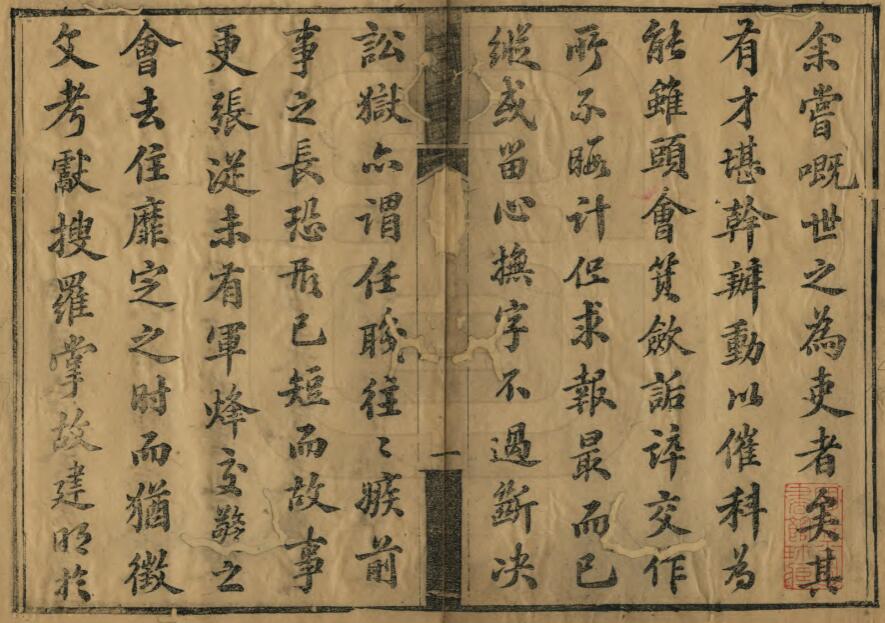 余嘗嘅世之為吏者矣其
有才堪幹辦動以催科為
能雖頭會箕斂詬誶交作
所不暇計但求報最而已
縱或留心撫字不過斷决
一
訟獄亦謂任職往〻嫉前
事之長恐形已短而故事
更張從未有軍烽交警之
會去住靡定之时而猶徵
文考獻搜羅掌故建明於